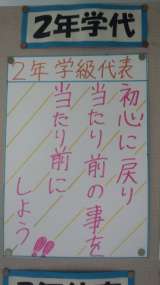 2年学代
2年学級代表
初心に戻り
当たり前の事を
当たり前に
しよう!!